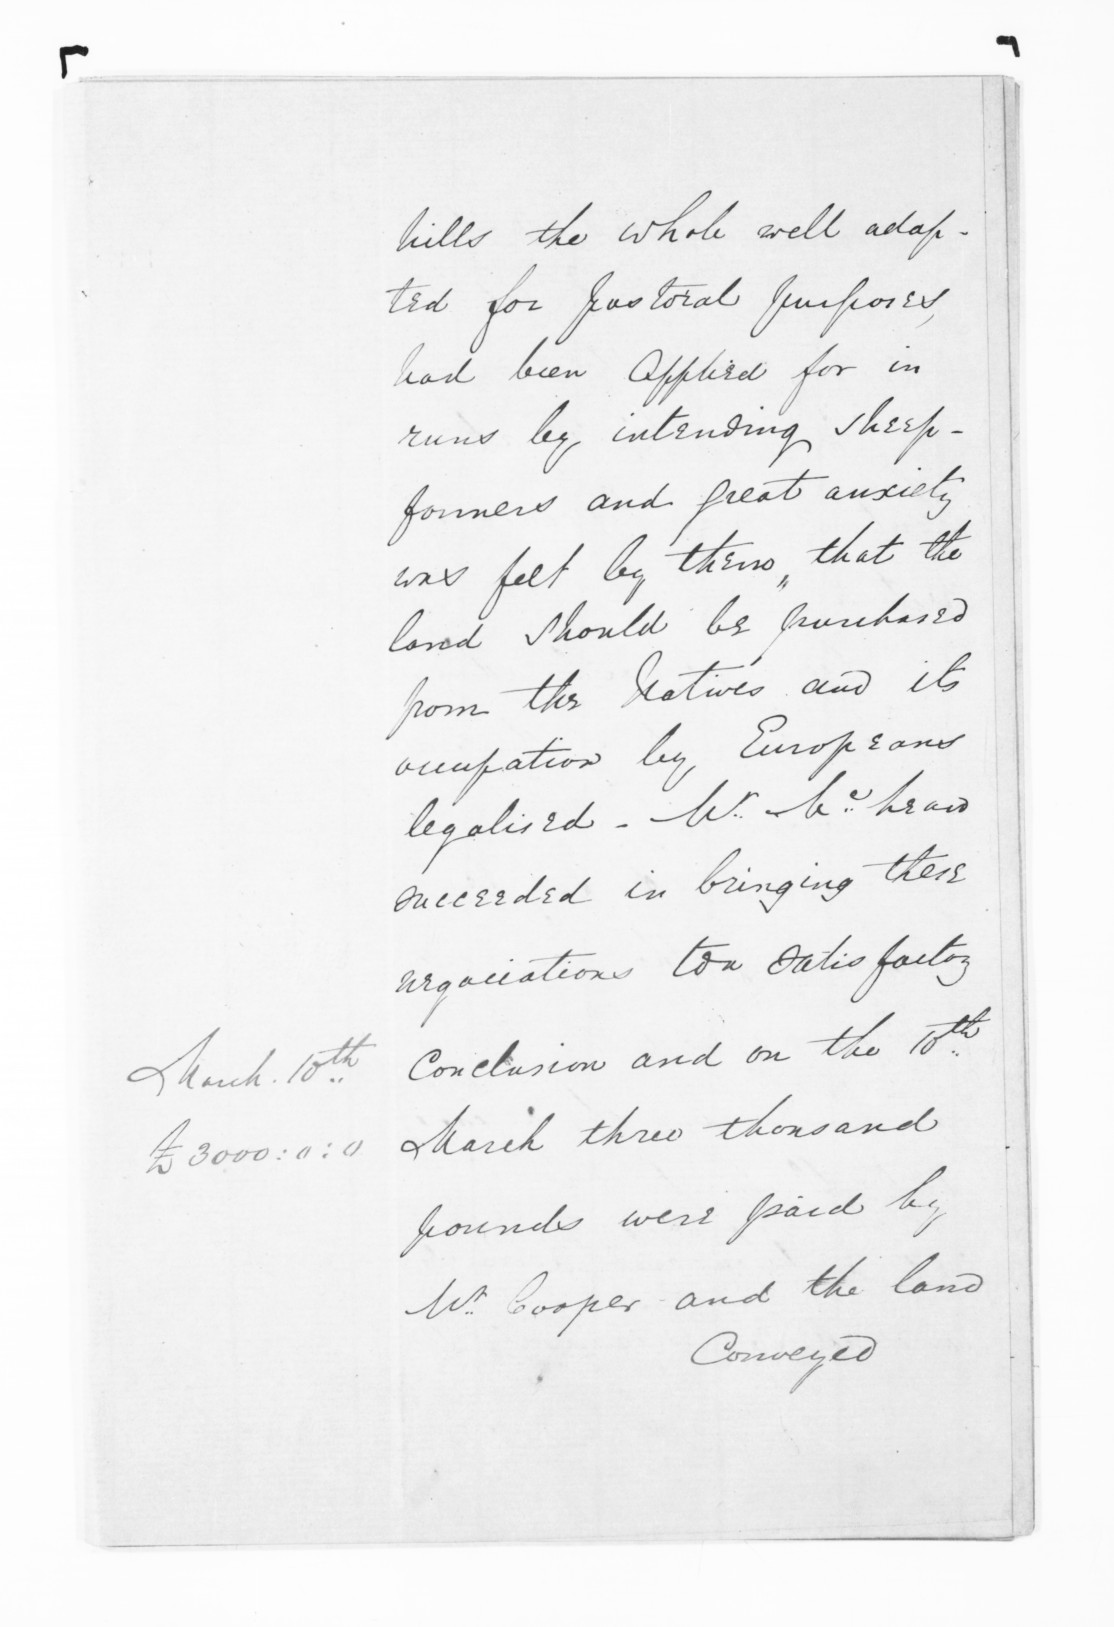 hills the whole well adap-
ted for pastoral purposes,
had been applied for in
runs by intending sheep-
farmers and great anxiety
was felt by them, that the
land should be purchased
from the Natives and its
occupation by Europeans
legalised - Mr. McLean
succeeded in bringing these
negociations to a satisfactory
March. 10th
Conclusion and on the 10th
£3000:0:0
March three thousand
pounds were paid by
Mr. Cooper and the land
Conveyed